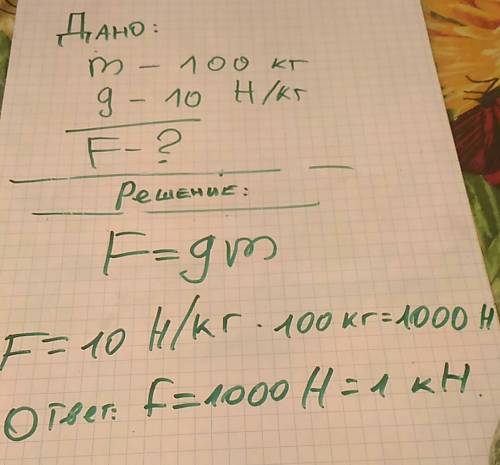 Дано:
m - 100 кг
g - 10 Н/кг
F - ?
Решение:
F = gm
F = 10 Н/кг · 100 кг = 1000 Н
Ответ: F = 1000 Н = 1 кН.